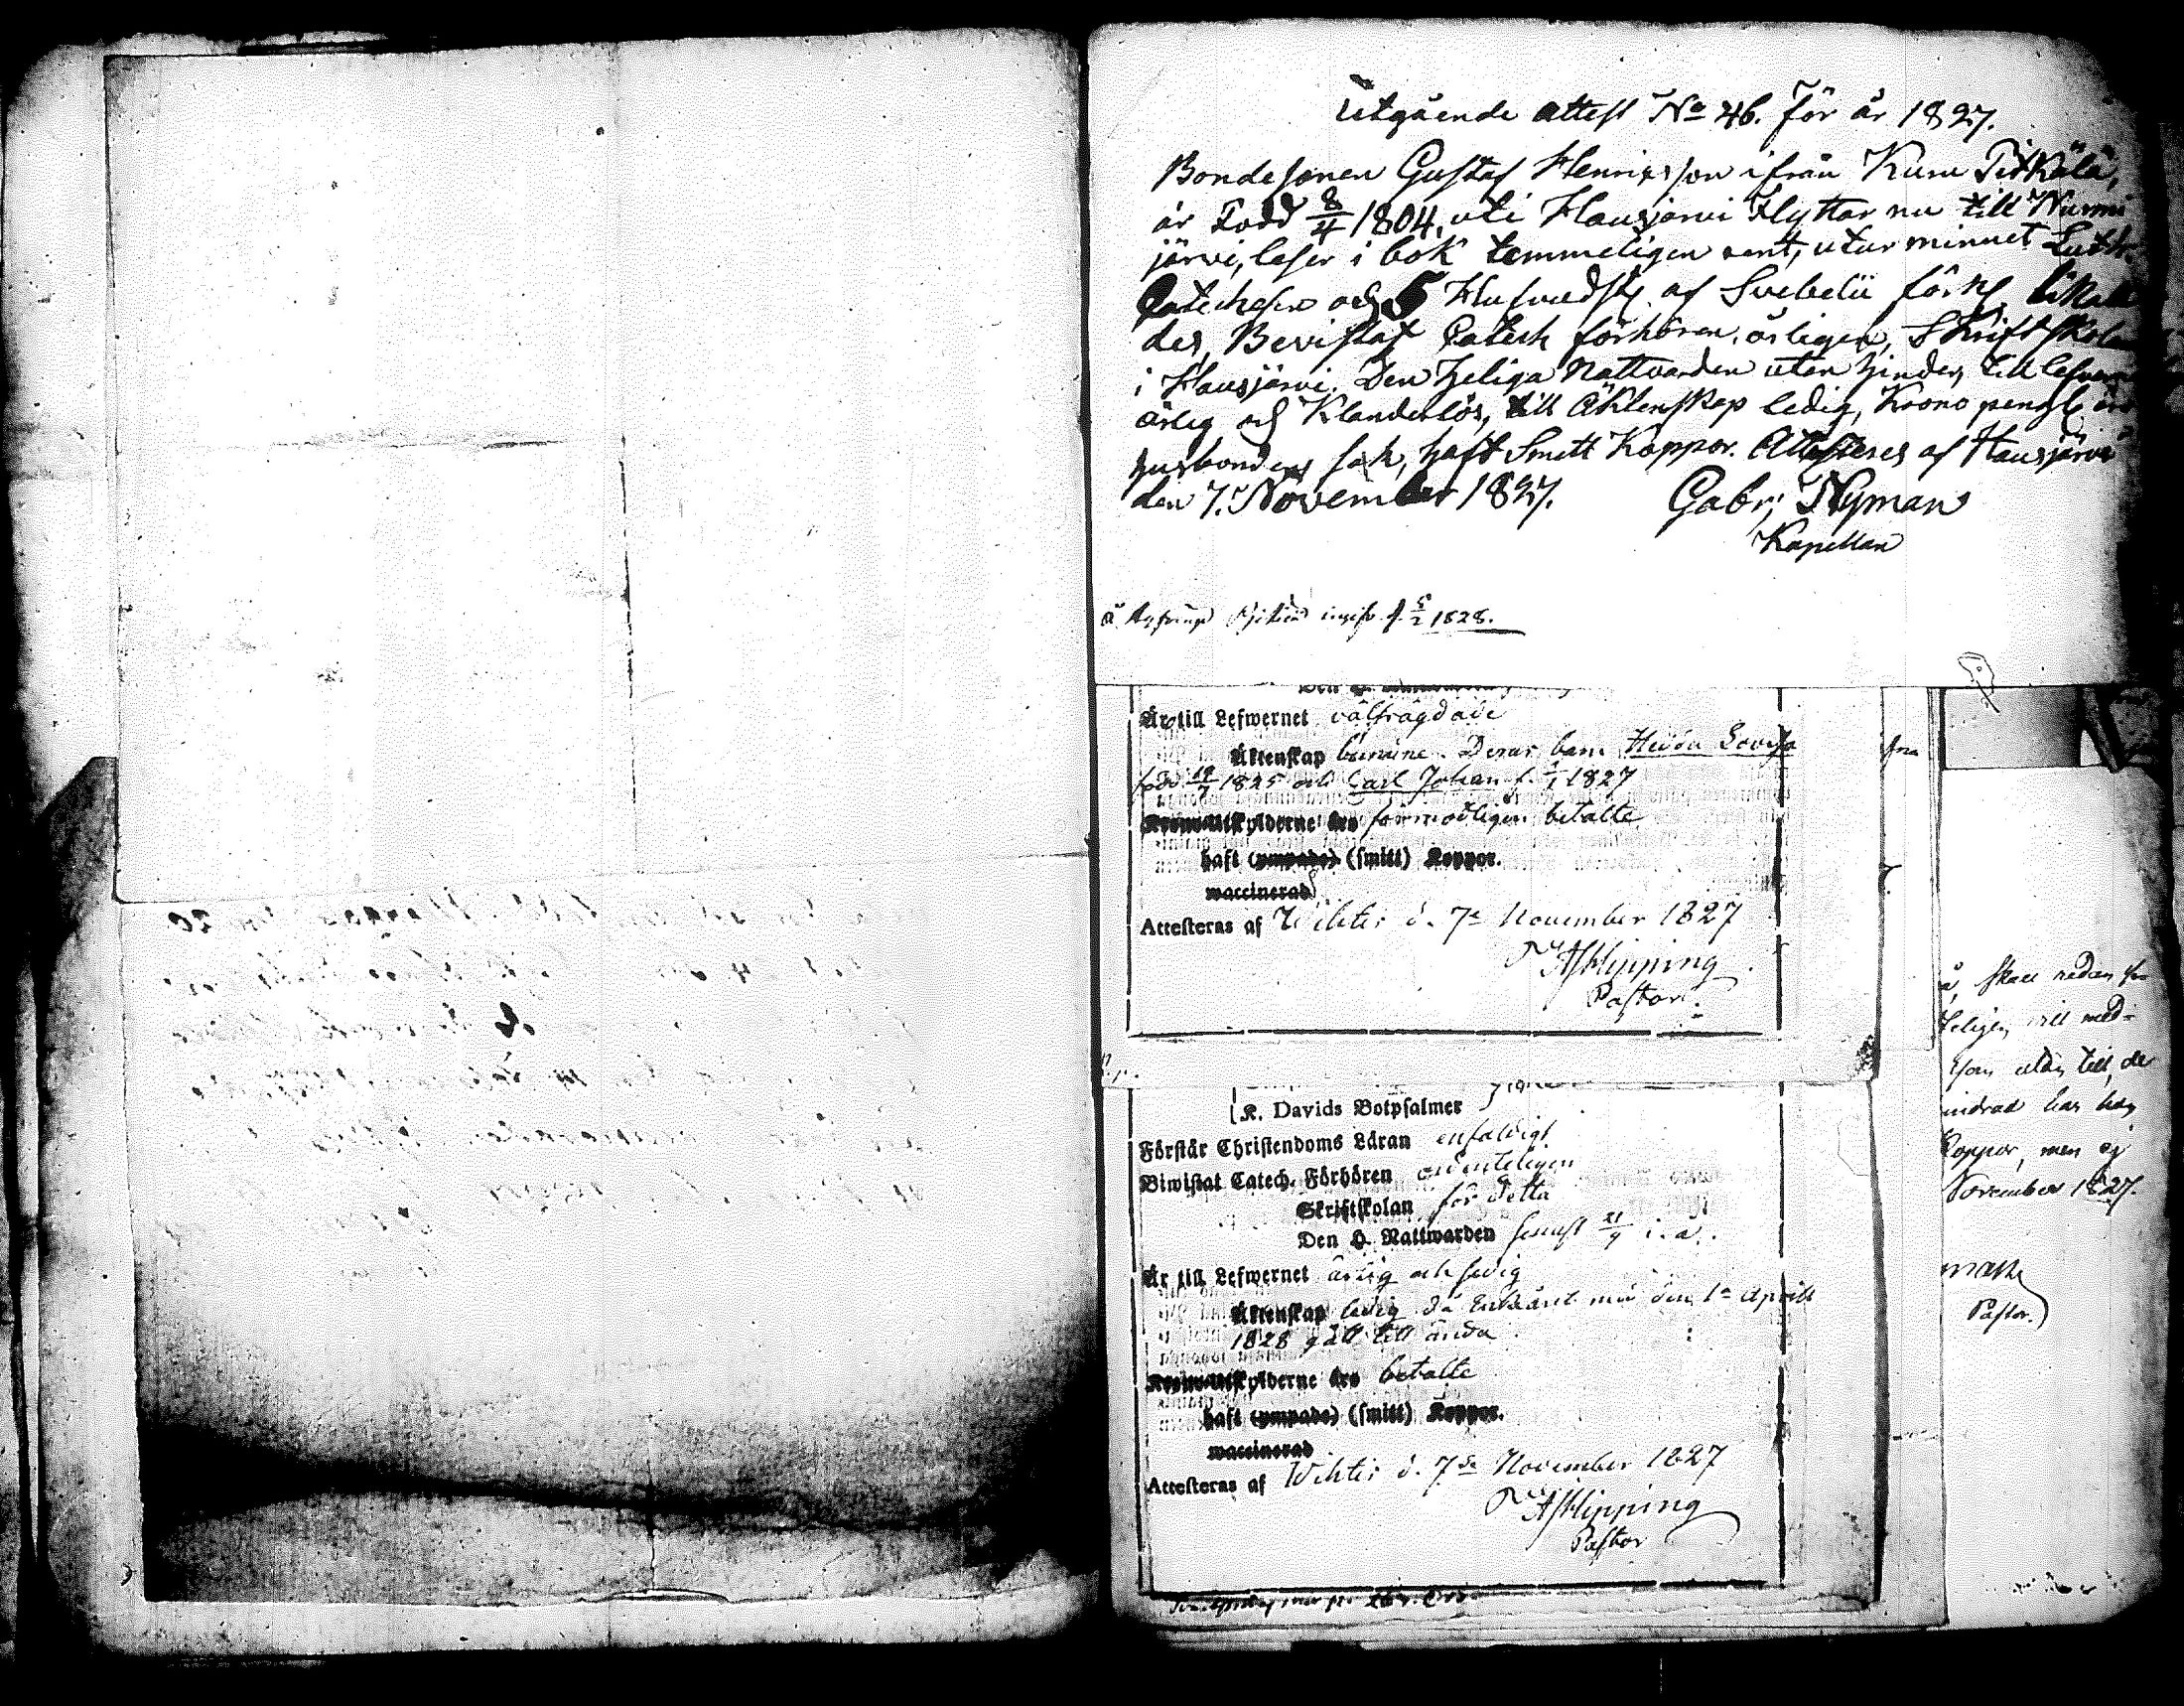 Utgående attest No 46. för år 1827.
Bondesonen Gustaf Henricsson ifrån Kuru Pitkälä,
är Född 8/4 1804, uti Hausjärvi Flyttar nu till Nurmi
järvi, läser i bok temmeligen rent, utur minnet Luth.
Catechesen och 5 Hufvudst. af Svebelii förkl. likale
des, Bevistat Catech förhören årligen, Skriftskolan
i Hausjärvi. Den heliga Nattvarden utan hinder, till lefvernet
ärlig och Klanderlös, till Äktenskap ledig, Krono peng
husbondens sak, haft Smitt Koppor. Attesteres af Hausjärvi
den 7. November 1827. Gabr: Nyman
Kapellan
å 5/2 1828.
Är till Lefwernet välfrägdade
Äktenskap bundne. Deras barn Hedda Lovisa
född 19/7 1825 och Carl Johan f. 1/1 1827
Krono-Utskylderne äro förmodligen betalte
haft (ympade) (smitt) Koppor.
waccinerad
Attesteras af Wihtis d. 7de November 1827
Pastor.
fra
K. Davids Botpsalmer
Förstår Christendoms Läran enfaldigt
Biwistat Catech. Förhören ordenteligen
Skriftskolan för detta
Den H. Nattwarden senast 21/9 i. a.
Är till Lefwernet ärlig och sedig
Äktenskap ledig då Enkåret med den 1a Aprill
1828 gått till ända
Krono-Utskylderne äro betalte
haft (ympade) (smitt) Koppor.
waccinerad
Attesteras af Wihtis d. 7de November 1827
Pastor
å, skall redan
teligen, vill med-
indrad har haft
Koppor, men ej
November 1827.
Pastor.